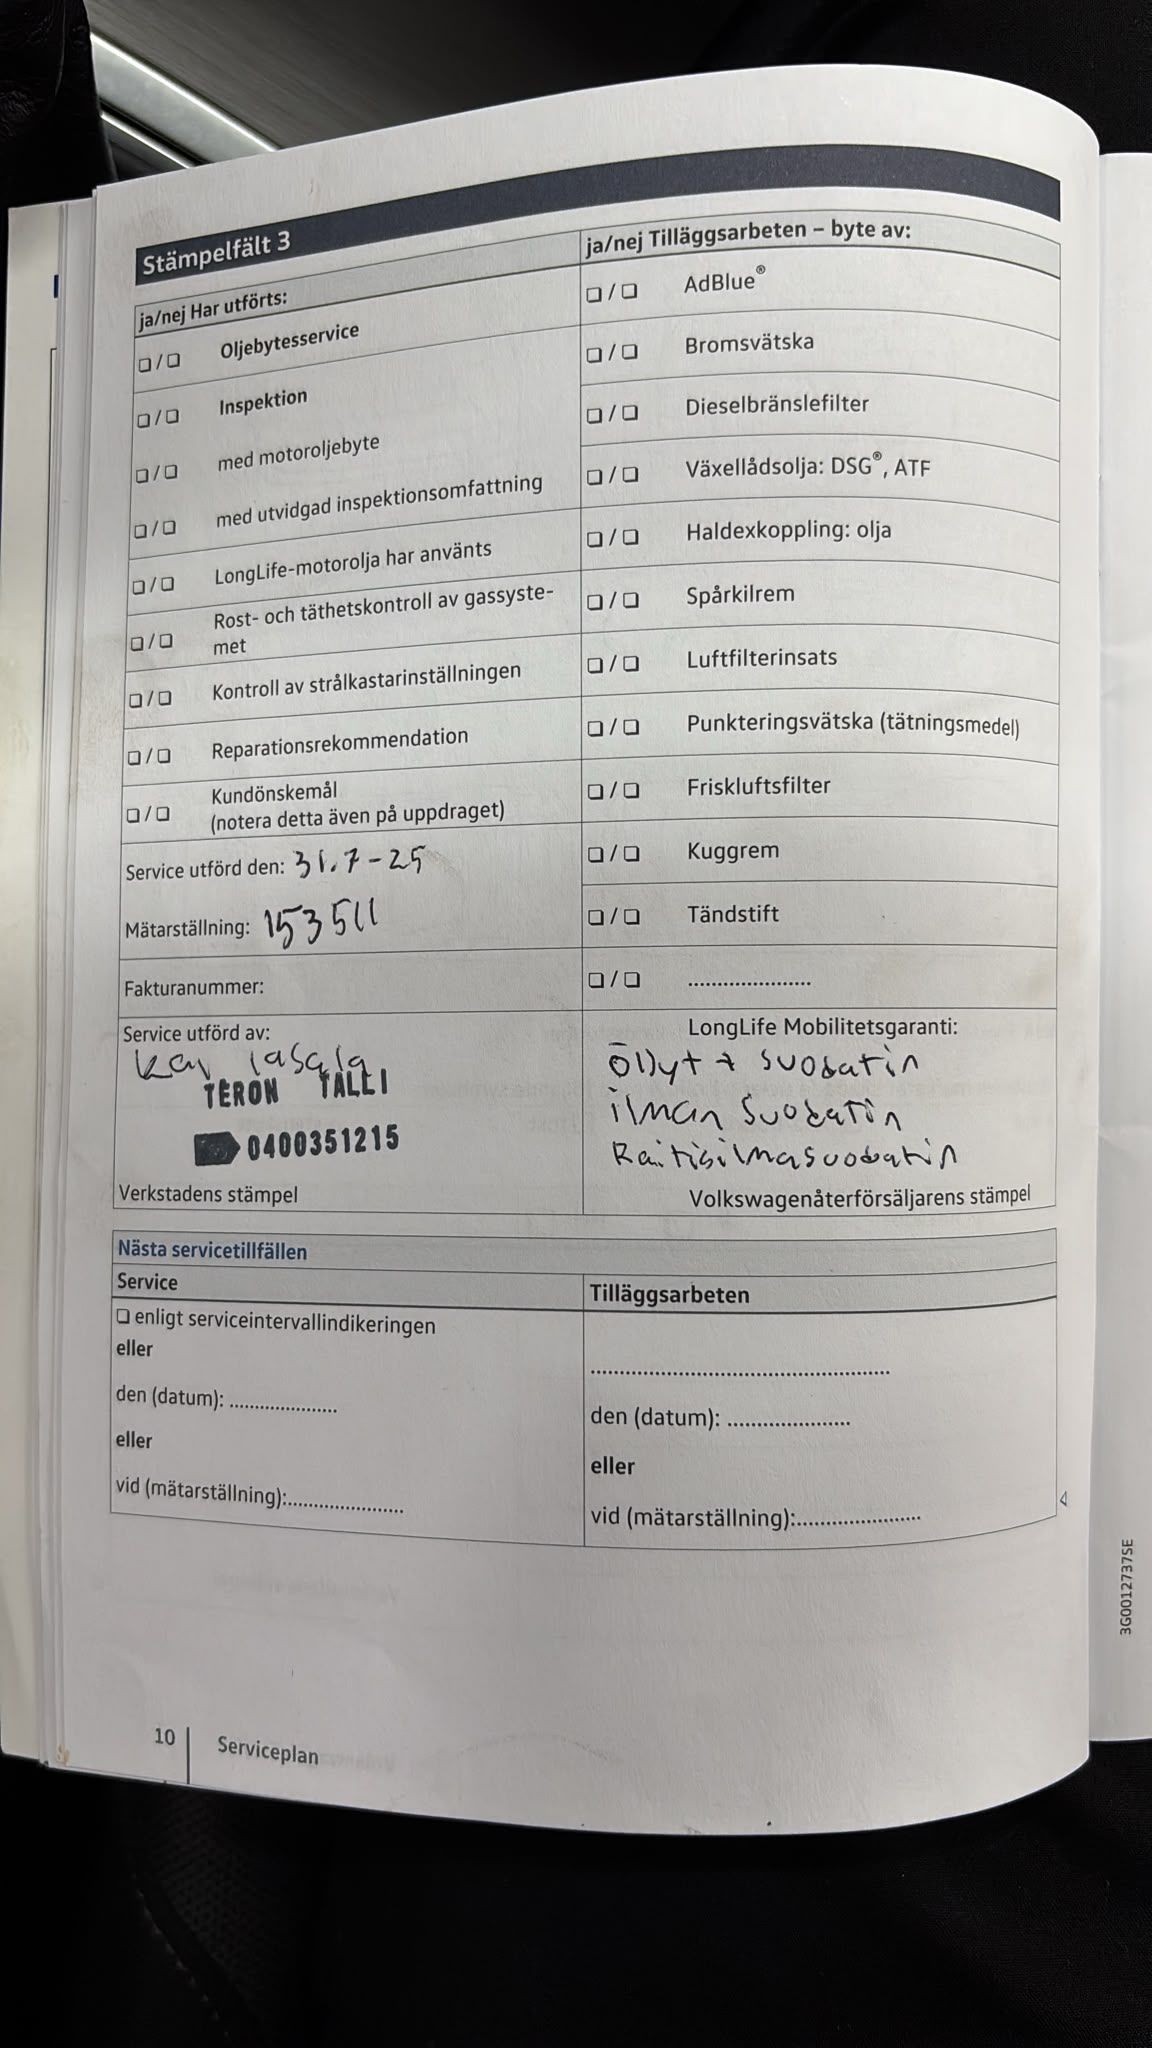 Stämpelfält 3
ja/nej Har utförts:
❑ / ❑ Oljebytesservice
❑ / ❑ Inspektion
❑ / ❑ med motoroljebyte
❑ / ❑ med utvidgad inspektionsomfattning
❑ / ❑ LongLife-motorolja har använts
❑ / ❑ Rost- och täthetskontroll av gassyste-
met
❑ / ❑ Kontroll av strålkastarinställningen
❑ / ❑ Reparationsrekommendation
❑ / ❑ Kundönskemål
(notera detta även på uppdraget)
Service utförd den: 31.7-25
Mätarställning: 153511
Fakturanummer:
Service utförd av:
TERON TALLI
0400351215
Verkstadens stämpel
ja/nej Tilläggsarbeten – byte av:
❑ / ❑ AdBlue®
❑ / ❑ Bromsvätska
❑ / ❑ Dieselbränslefilter
❑ / ❑ Växellådsolja: DSG®, ATF
❑ / ❑ Haldexkoppling: olja
❑ / ❑ Spårkilrem
❑ / ❑ Luftfilterinsats
❑ / ❑ Punkteringsvätska (tätningsmedel)
❑ / ❑ Friskluftsfilter
❑ / ❑ Kuggrem
❑ / ❑ Tändstift
❑ / ❑ ......................
LongLife Mobilitetsgaranti:
Öllyt + suodatin
ilman Suodatin
Raitisilmasuodatin
Volkswagenåterförsäljarens stämpel
Nästa servicetillfällen
Service
❑ enligt serviceintervallindikeringen
eller
den (datum): ......................
eller
vid (mätarställning):......................
Tilläggsarbeten
......................................................
den (datum): ......................
eller
vid (mätarställning):......................
3G0012737SE
10 Serviceplan